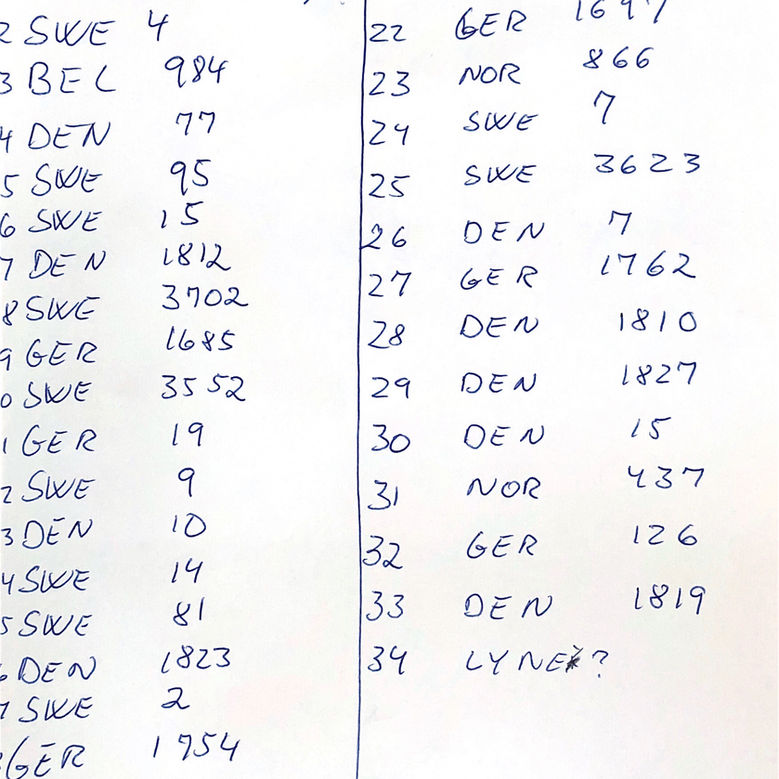 2 SWE 4
3 BEL 984
4 DEN 77
5 SWE 95
6 SWE 15
7 DEN 1812
8 SWE 3702
9 GER 1685
0 SWE 3552
1 GER 19
2 SWE 9
3 DEN 10
4 SWE 14
5 SWE 81
6 DEN 1823
7 SWE 2
GER 1754
22 GER 1697
23 NOR 866
24 SWE 7
25 SWE 3623
26 DEN 7
27 GER 1762
28 DEN 1810
29 DEN 1827
30 DEN 15
31 NOR 437
32 GER 126
33 DEN 1819
34 LYNE ?